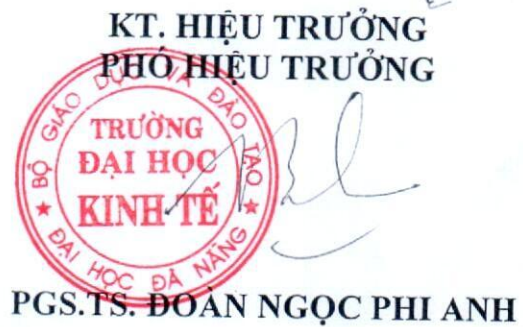 KT. HIỆU TRƯỞNG
PHÓ HIỆU TRƯỞNG
BỘ GIÁO DỤC VÀ ĐÀO TẠO
TRƯỜNG
ĐẠI HỌC
KINH TẾ
★ ĐẠI HỌC ĐÀ NẴNG ★
PGS.TS. ĐOÀN NGỌC PHI ANH